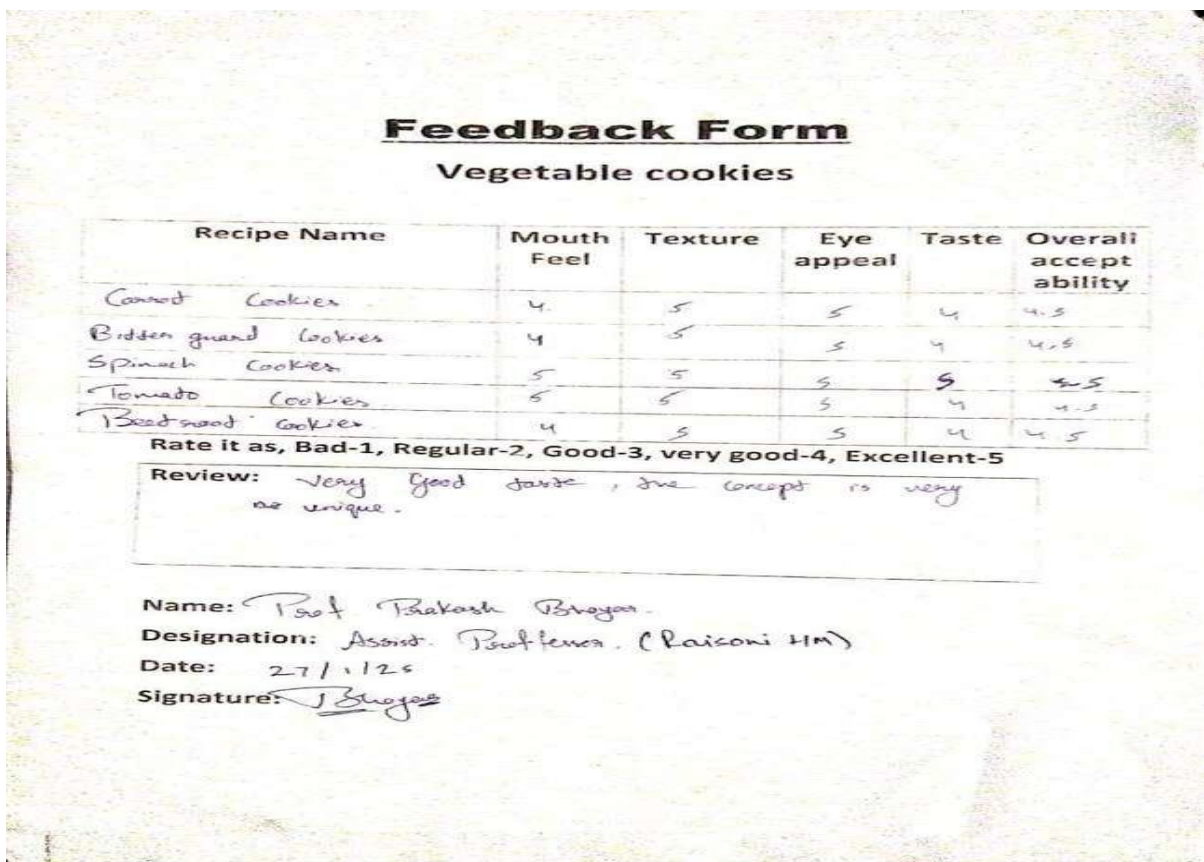 Feedback Form
Vegetable cookies
Recipe Name Mouth Feel Texture Eye appeal Taste Overall accept ability
Carrot Cookies 4. 5 5 4 4.5
guard Cookies 4 5 5 4 4.5
Spinach Cookies 5 5 5 5
Tomato Cookies 5 5 5 4 4.5
Beetroot Cookies 4 5 5 4 4.5
Rate it as, Bad-1, Regular-2, Good-3, very good-4, Excellent-5
Review: Very Good taste, the concept is very
unique.
Name: Prof Prakash Bhoyar.
Designation: Assist. Proffessor. (Raisoni HM)
Date: 27/1/25
Signature: Bhoyar